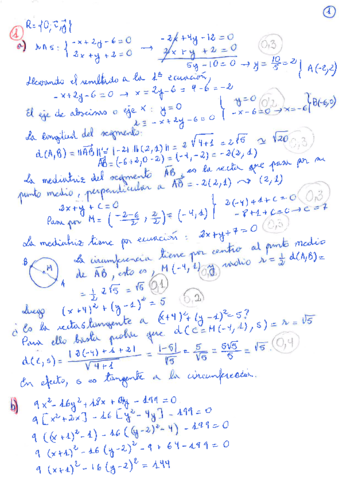 1
R = {O, i, j}
1
a) r∩s: { -x+2y-6=0 → -2x+4y-12=0
2x+y+2=0 2x+y+2=0
5y-10=0 → y=10/5=2 A(-2,2) 0,3
Llevando el resultado a la 1ª ecuación,
-x+2y-6=0 → x=2y-6=4-6=-2
El eje de abscisas o eje x: y=0 { y=0
r ≡ -x+2y-6=0 -x-6=0 → x=-6 B(-6,0) 0,3
La longitud del segmento:
d(A,B) = ||AB|| = |-2| ||(2,1)|| = 2√(4+1) = 2√5 ≅ √20 0,3
AB = (-6+2, 0-2) = (-4,-2) = -2(2,1)
La mediatriz del segmento AB es la recta que pasa por su
punto medio, perpendicular a AB = -2(2,1) → (2,1)
2x+y+C=0 2(-4)+1+C=0
Pasa por M = (-2-6/2, 2/2) = (-4,1) -8+1+C=0 → C=7 0,3
La mediatriz tiene por ecuación: 2x+y+7=0 0,3
B M A La circunferencia tiene por centro el punto medio
de AB, esto es, M(-4,1) y radio r = 1/2 d(A,B) =
= 1/2 2√5 = √5 0,1
Luego (x+4)²+(y-1)² = 5 0,2
¿Es la recta s tangente a (x+4)²+(y-1)²=5?
Para ello basta probar que d(C=M(-4,1), s) = r = √5
d(C,s) = |2(-4)+1+2|/√(4+1) = |-5|/√5 = 5/√5 = 5√5/5 = √5 0,4
En efecto, s es tangente a la circunferencia.
b) 9x²-16y²+18x+64y-199=0
9[x²+2x]-16[y²-4y]-199=0
9((x+1)²-1)-16((y-2)²-4)-199=0
9(x+1)²-16(y-2)²-9+64-199=0
9(x+1)²-16(y-2)²=144